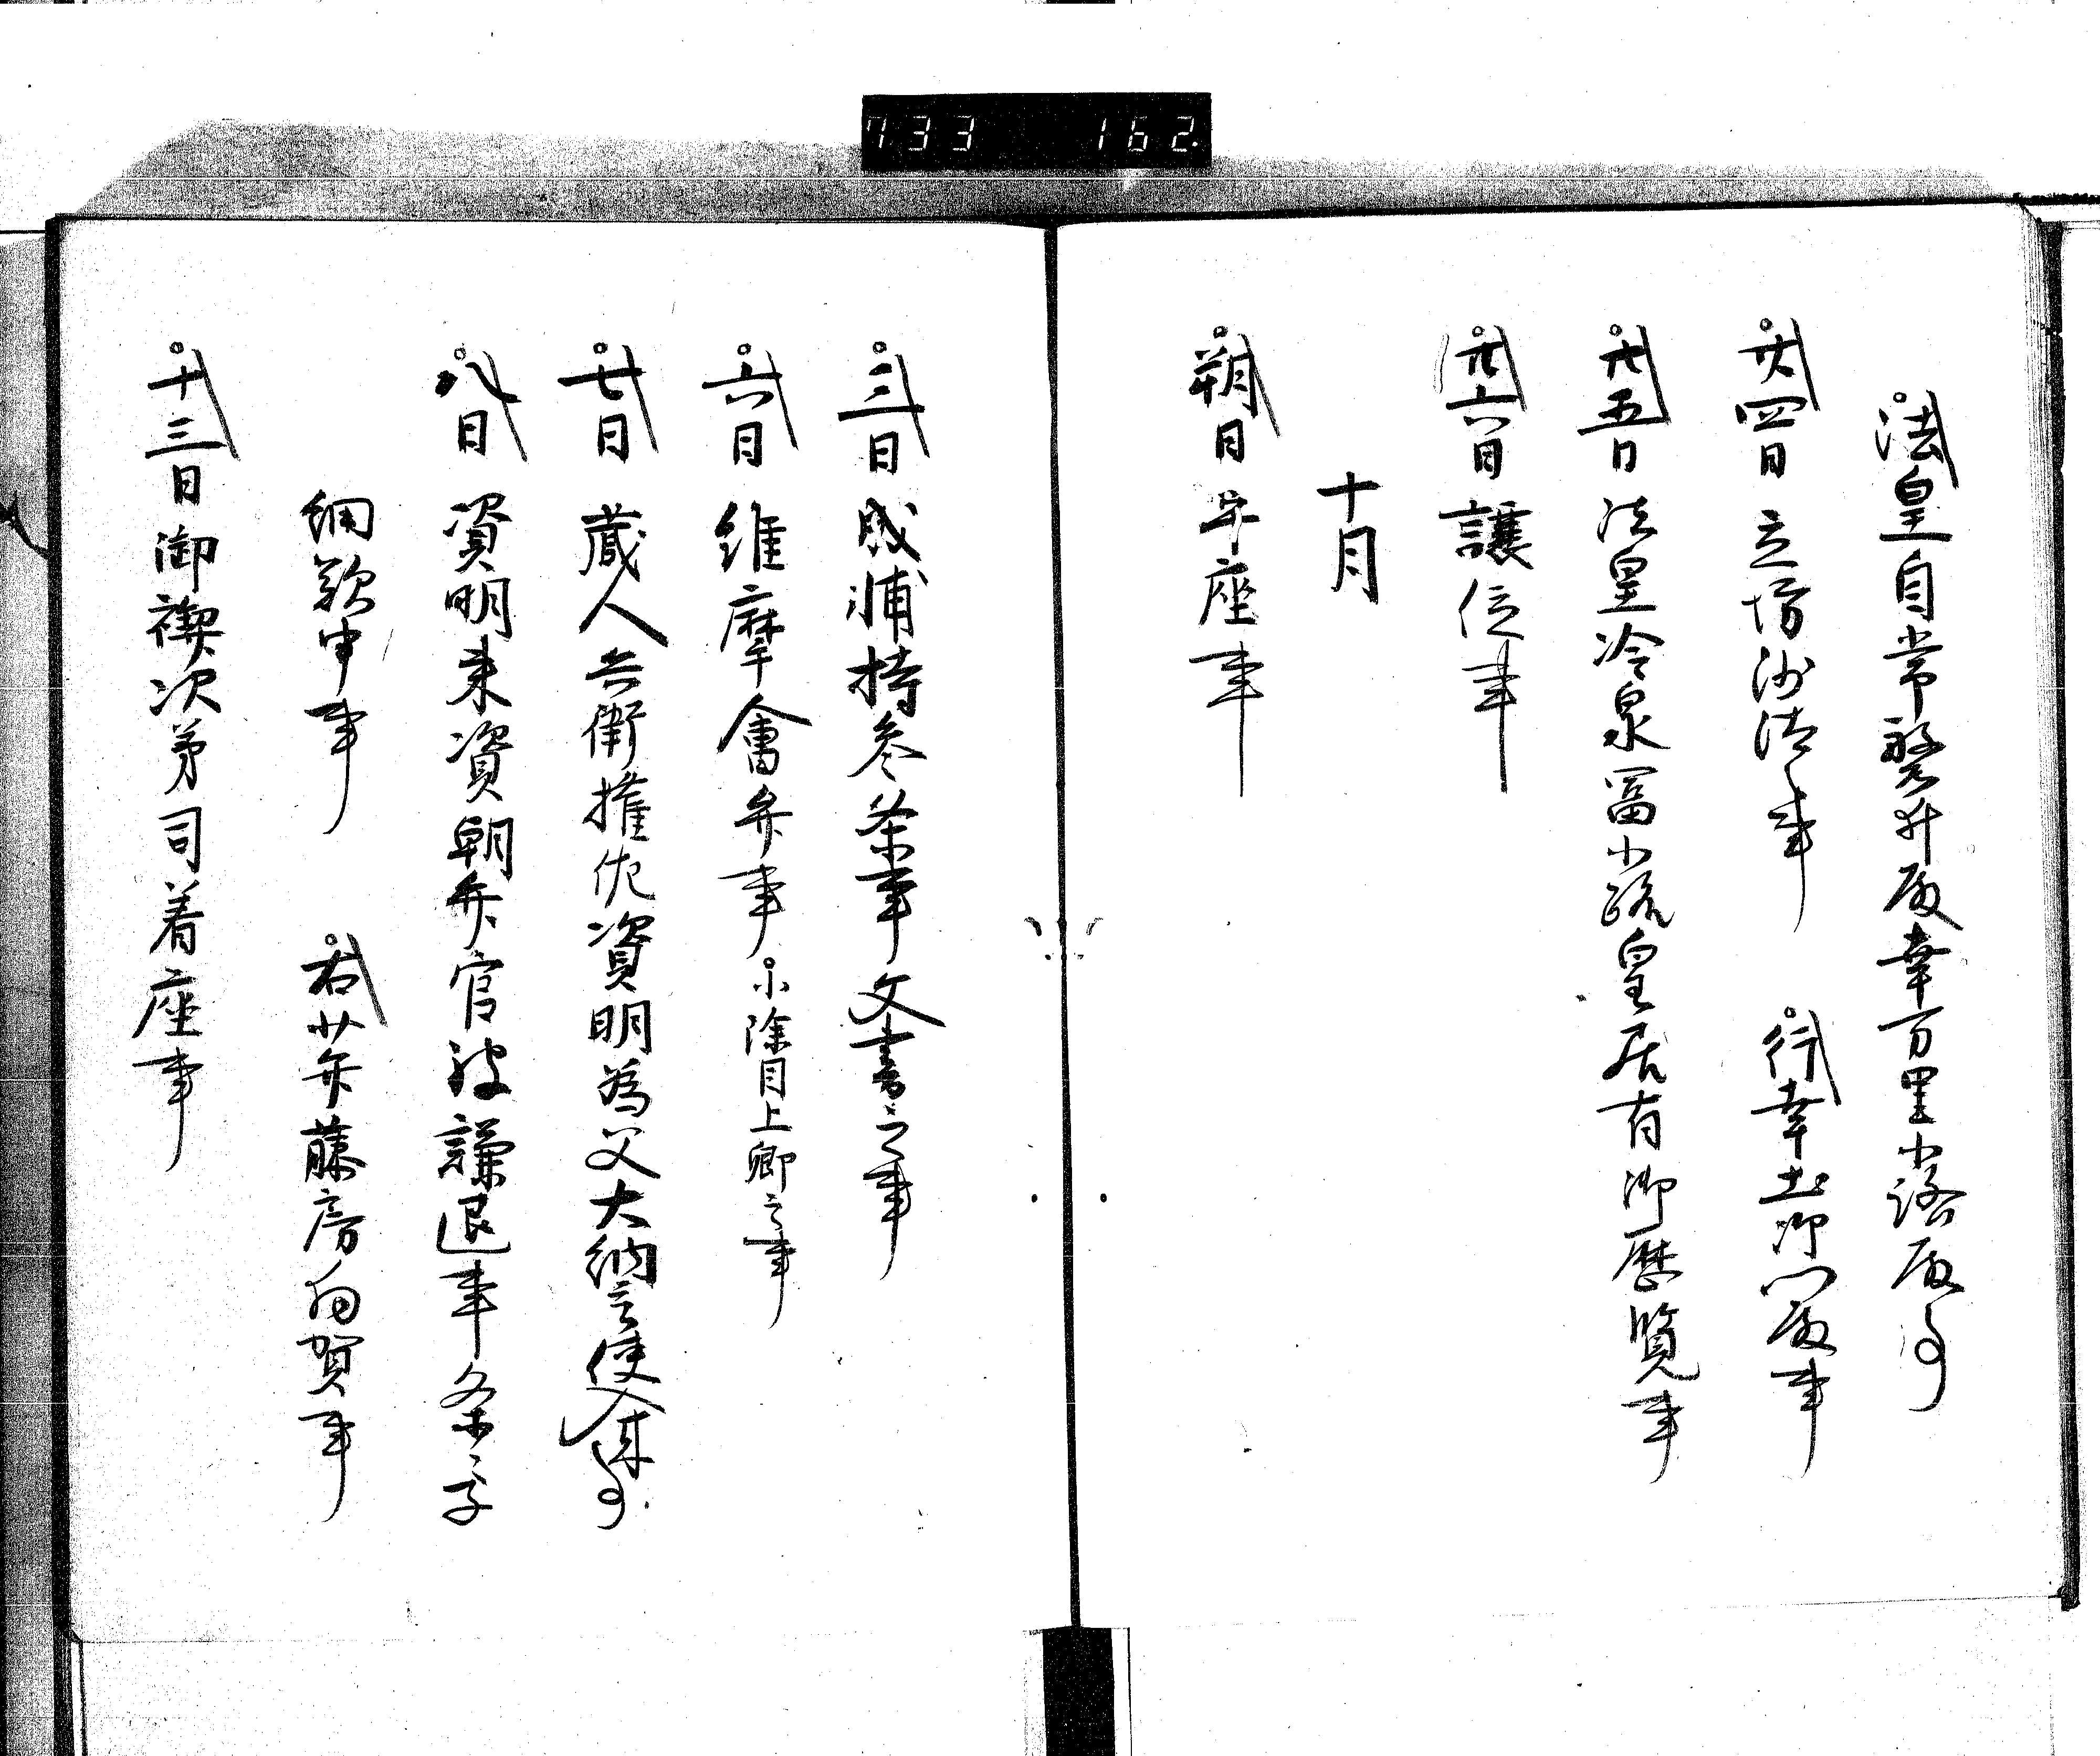 733 162.
法皇自常磐井殿幸万里小路殿事
廿四日 立坊沙汰事 行幸土御門殿事
廿五日 法皇冷泉富小路皇居有御歴覧事
廿六日 譲位事
十月
朔日 平座事
三日 成輔持参条事文書之事
六日 維摩會弁事 小除目上卿之事
七日 蔵人兵衛権佐資明為父大納言使入来事
八日 資明来資朝弁官被謙退事条々子
細歎申事 右少弁藤房拝賀事
十三日 御禊次第司着座事